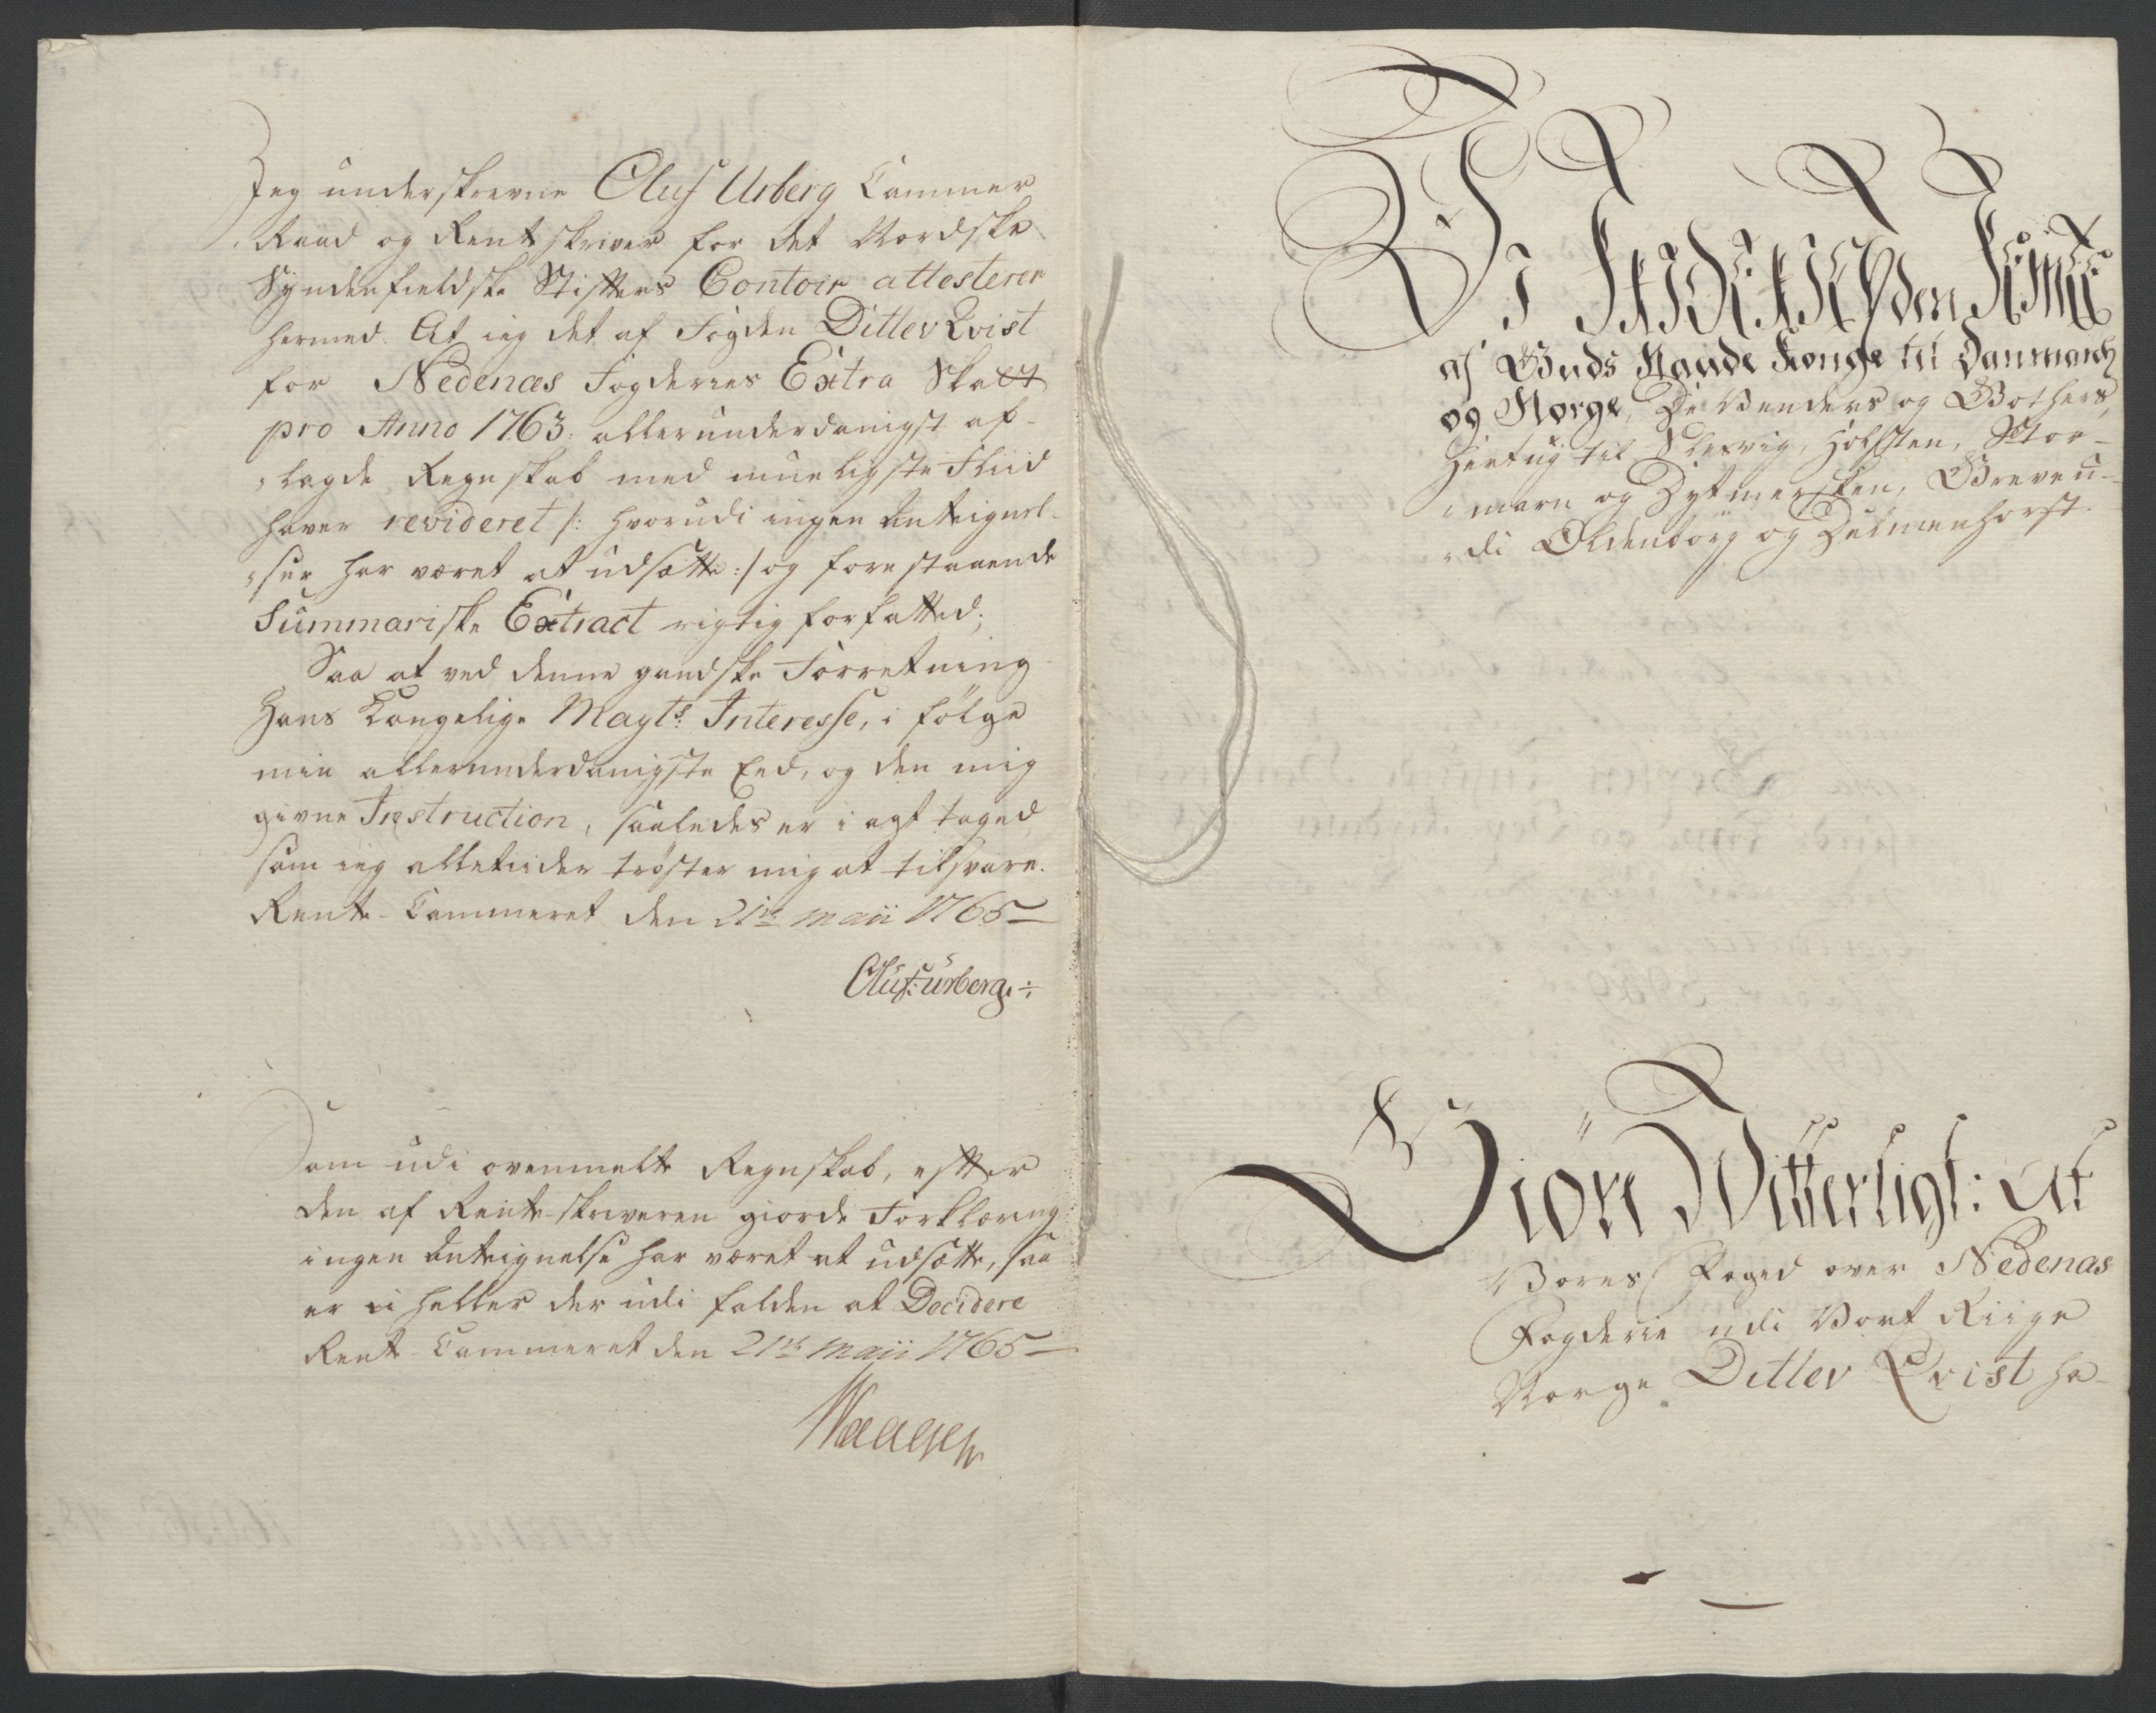 Jeg underskrevne Oluf Urberg Cammer
Raad og Rentskriver for det Nordske
Syndenfieldske Stifters Contoir attesterer
hermed: At ieg det af Fogden Ditlev Qvist
for Nedenæs Fogderies Extra Skatt
pro Anno 1763: allerunderdanigst af-
„lagde Regnskab med mueligste Fliid
haver revideret /: hvorudi ingen Antegnel-
„ser har været at udsætte :/ og forestaaende
Summariske Extract rigtig forfatted;
Saa at ved denne gandske Forretning
Hans Kongelige Mayts: Interesse, i følge
min allerunderdanigste Eed, og den mig
givne Instruction, saaledes er i agt taged,
som ieg alletiider trøster mig at tilsvare.
Rente-Cammeret den 21de maii 1765
Oluf: Urberg.
Som udi ovenmelte Regnskab, efter
den af Renteskriveren giorde Forklaring
ingen Antegnelse har været at udsætte, saa
er ei heller der udi falden at Decidere
Rent-Cammeret den 21de maii 1765
Wi Friderich den Femte
af Guds Naade Konge til Danmarck
og Norge, De Venders og Gothers,
Hertug til Slesvig, Holsten, Stor-
„marn og Dytmersken, Greve u-
„di Oldenborg og Delmenhorst.
Giøre Witterligt: At
Vores Foged over Nedenæs
Fogderie udi Vort Riige
Norge Ditlev Qvist ha-